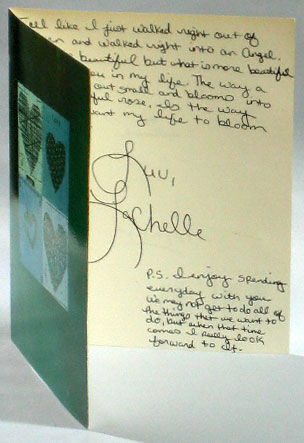 feel like I just walked right out of
and walked right into an Angel.
beautiful but what is more beautiful
you in my life. The way a
out small and blooms into
rose, Is the way
want my life to bloom
Luv,
Lachelle
P.S. I enjoy spending
everyday with you
we may not get to do all of
the things that we want to
do, but when that time
comes I really look
forward to it.